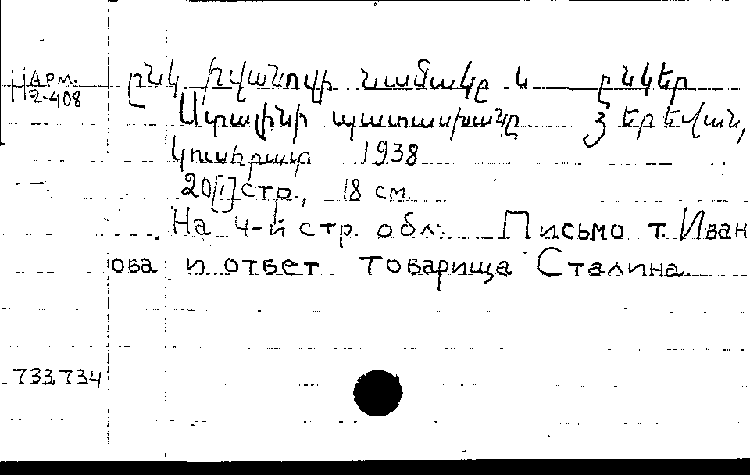 Арм. ընկ. Իվանովի նամակը և ընկեր
2-408 Ստալինի պատասխանը Յերեվան,
Կուսհրատ 1938
20[1] стр., 18 см
На 4-й стр. обл. Письмо т. Иван
ова и ответ товарища Сталина
733734